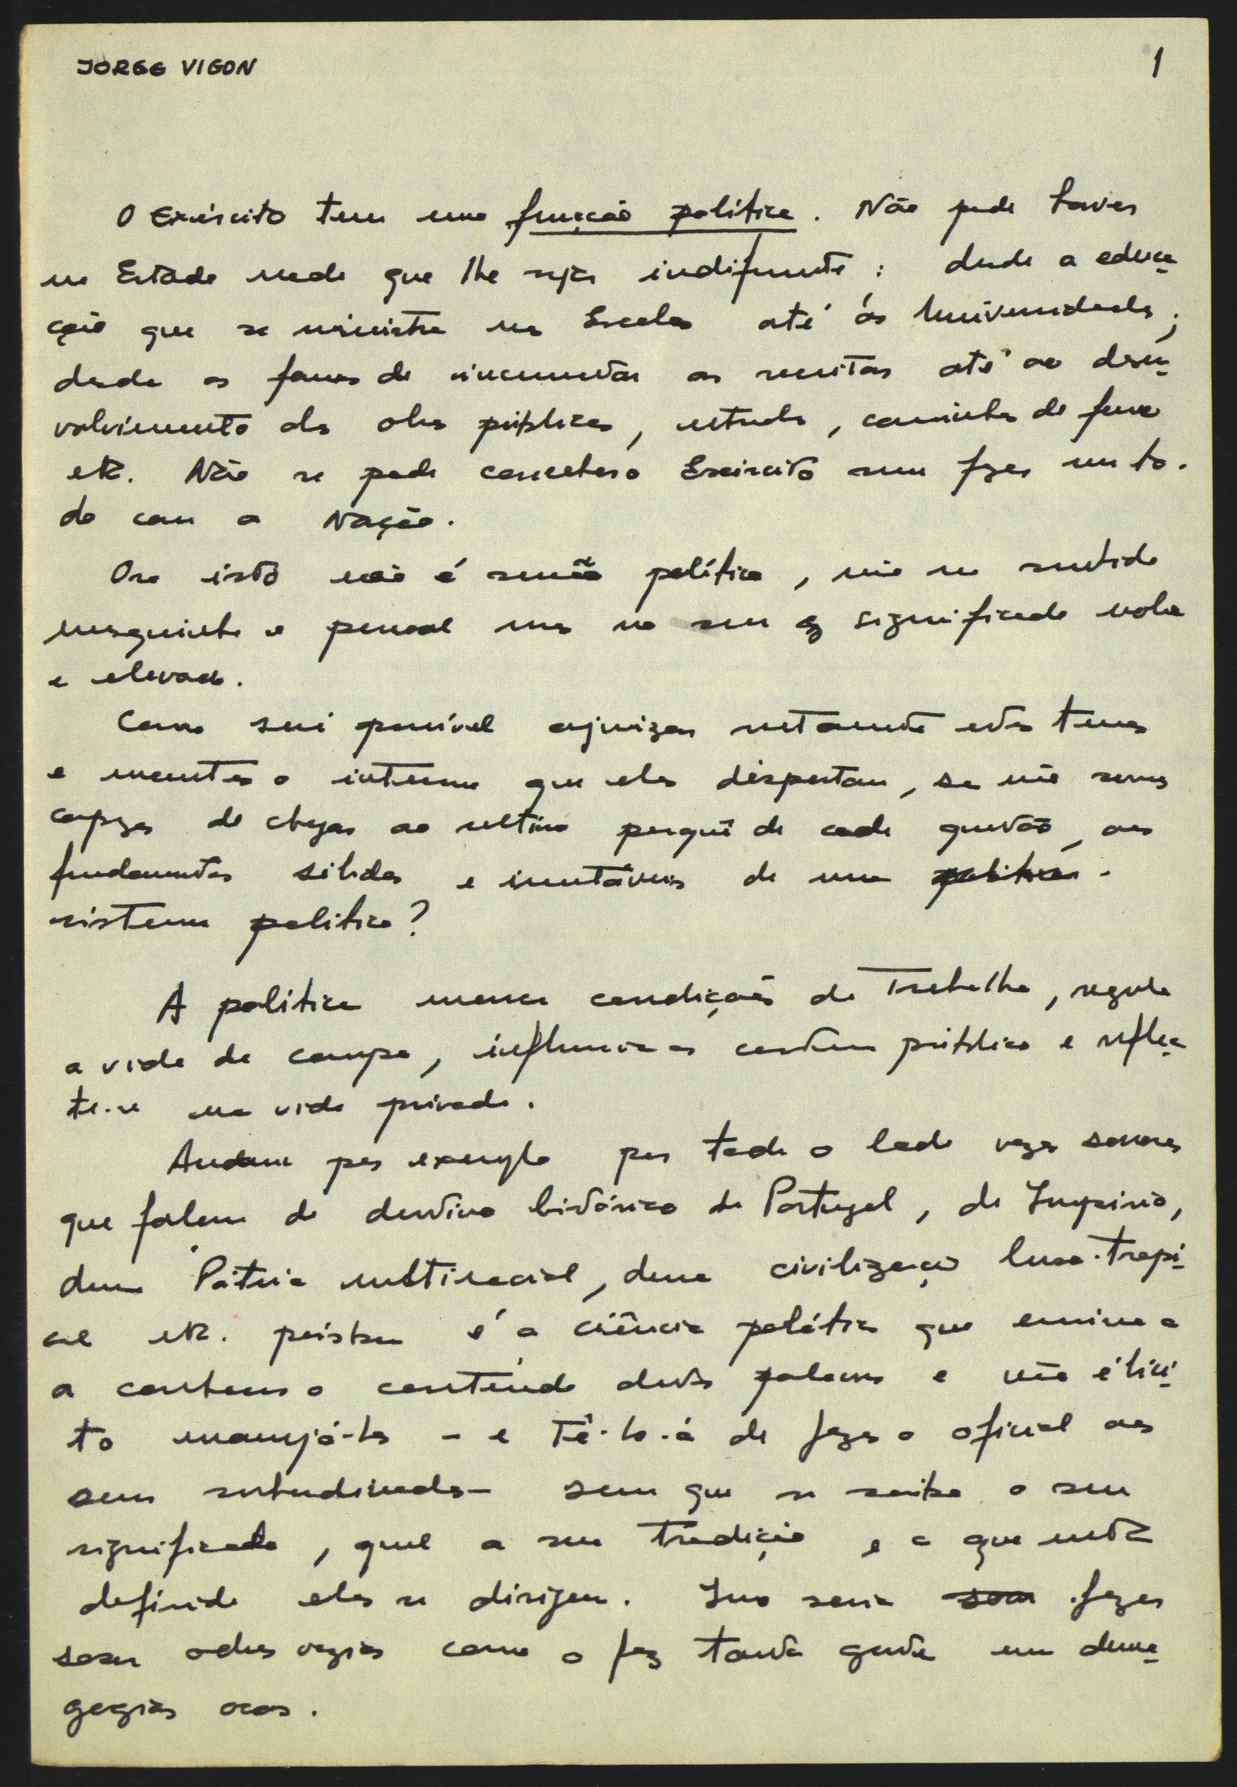 JORGE VIGON
1
O Exército tem uma função política. Não pode haver
no Estado nada que lhe seja indiferente: desde a educa-
ção que se ministra na Escola até ás Universidades;
desde as formas de incrementar as receitas até ao desen-
volvimento das obras públicas, estradas, caminhos de ferro
etc. Não se pode conceber o Exército sem fazer um to-
do com a Nação.
Ora isto não é senão política, não no sentido
mesquinho e pessoal mas no seu significado nobre
e elevado.
Como será possível ajuizar rectamente estes temas
e manter o interesse que eles despertam, se não somos
capazes de chegar ao ultimo porquê de cada questão, aos
fundamentos sólidos e imutáveis de um politica
sistema politico?
A política marca condições de Trabalho, regula
a vida do campo, influencia os costumes públicos e reflec-
te-se na vida privada.
Andam por exemplo por todo o lado vozes sonoras
que falam do destino histórico de Portugal, do Império,
duma Pátria multiracial, duma civilização luso-tropi-
cal etc. pois bem é a ciência política que ensina a
a conhecer o conteúdo destas palavras e não é líci-
to manejá-las - e tê-lo-á de fazer o oficial aos
seus subordinados - sem que se saiba o seu
significado, qual a sua tradição e a que meta
definida elas se dirigem. Isso seria soar fazer
soar odres vazios como o faz tanta gente em dema-
gogias ocas.